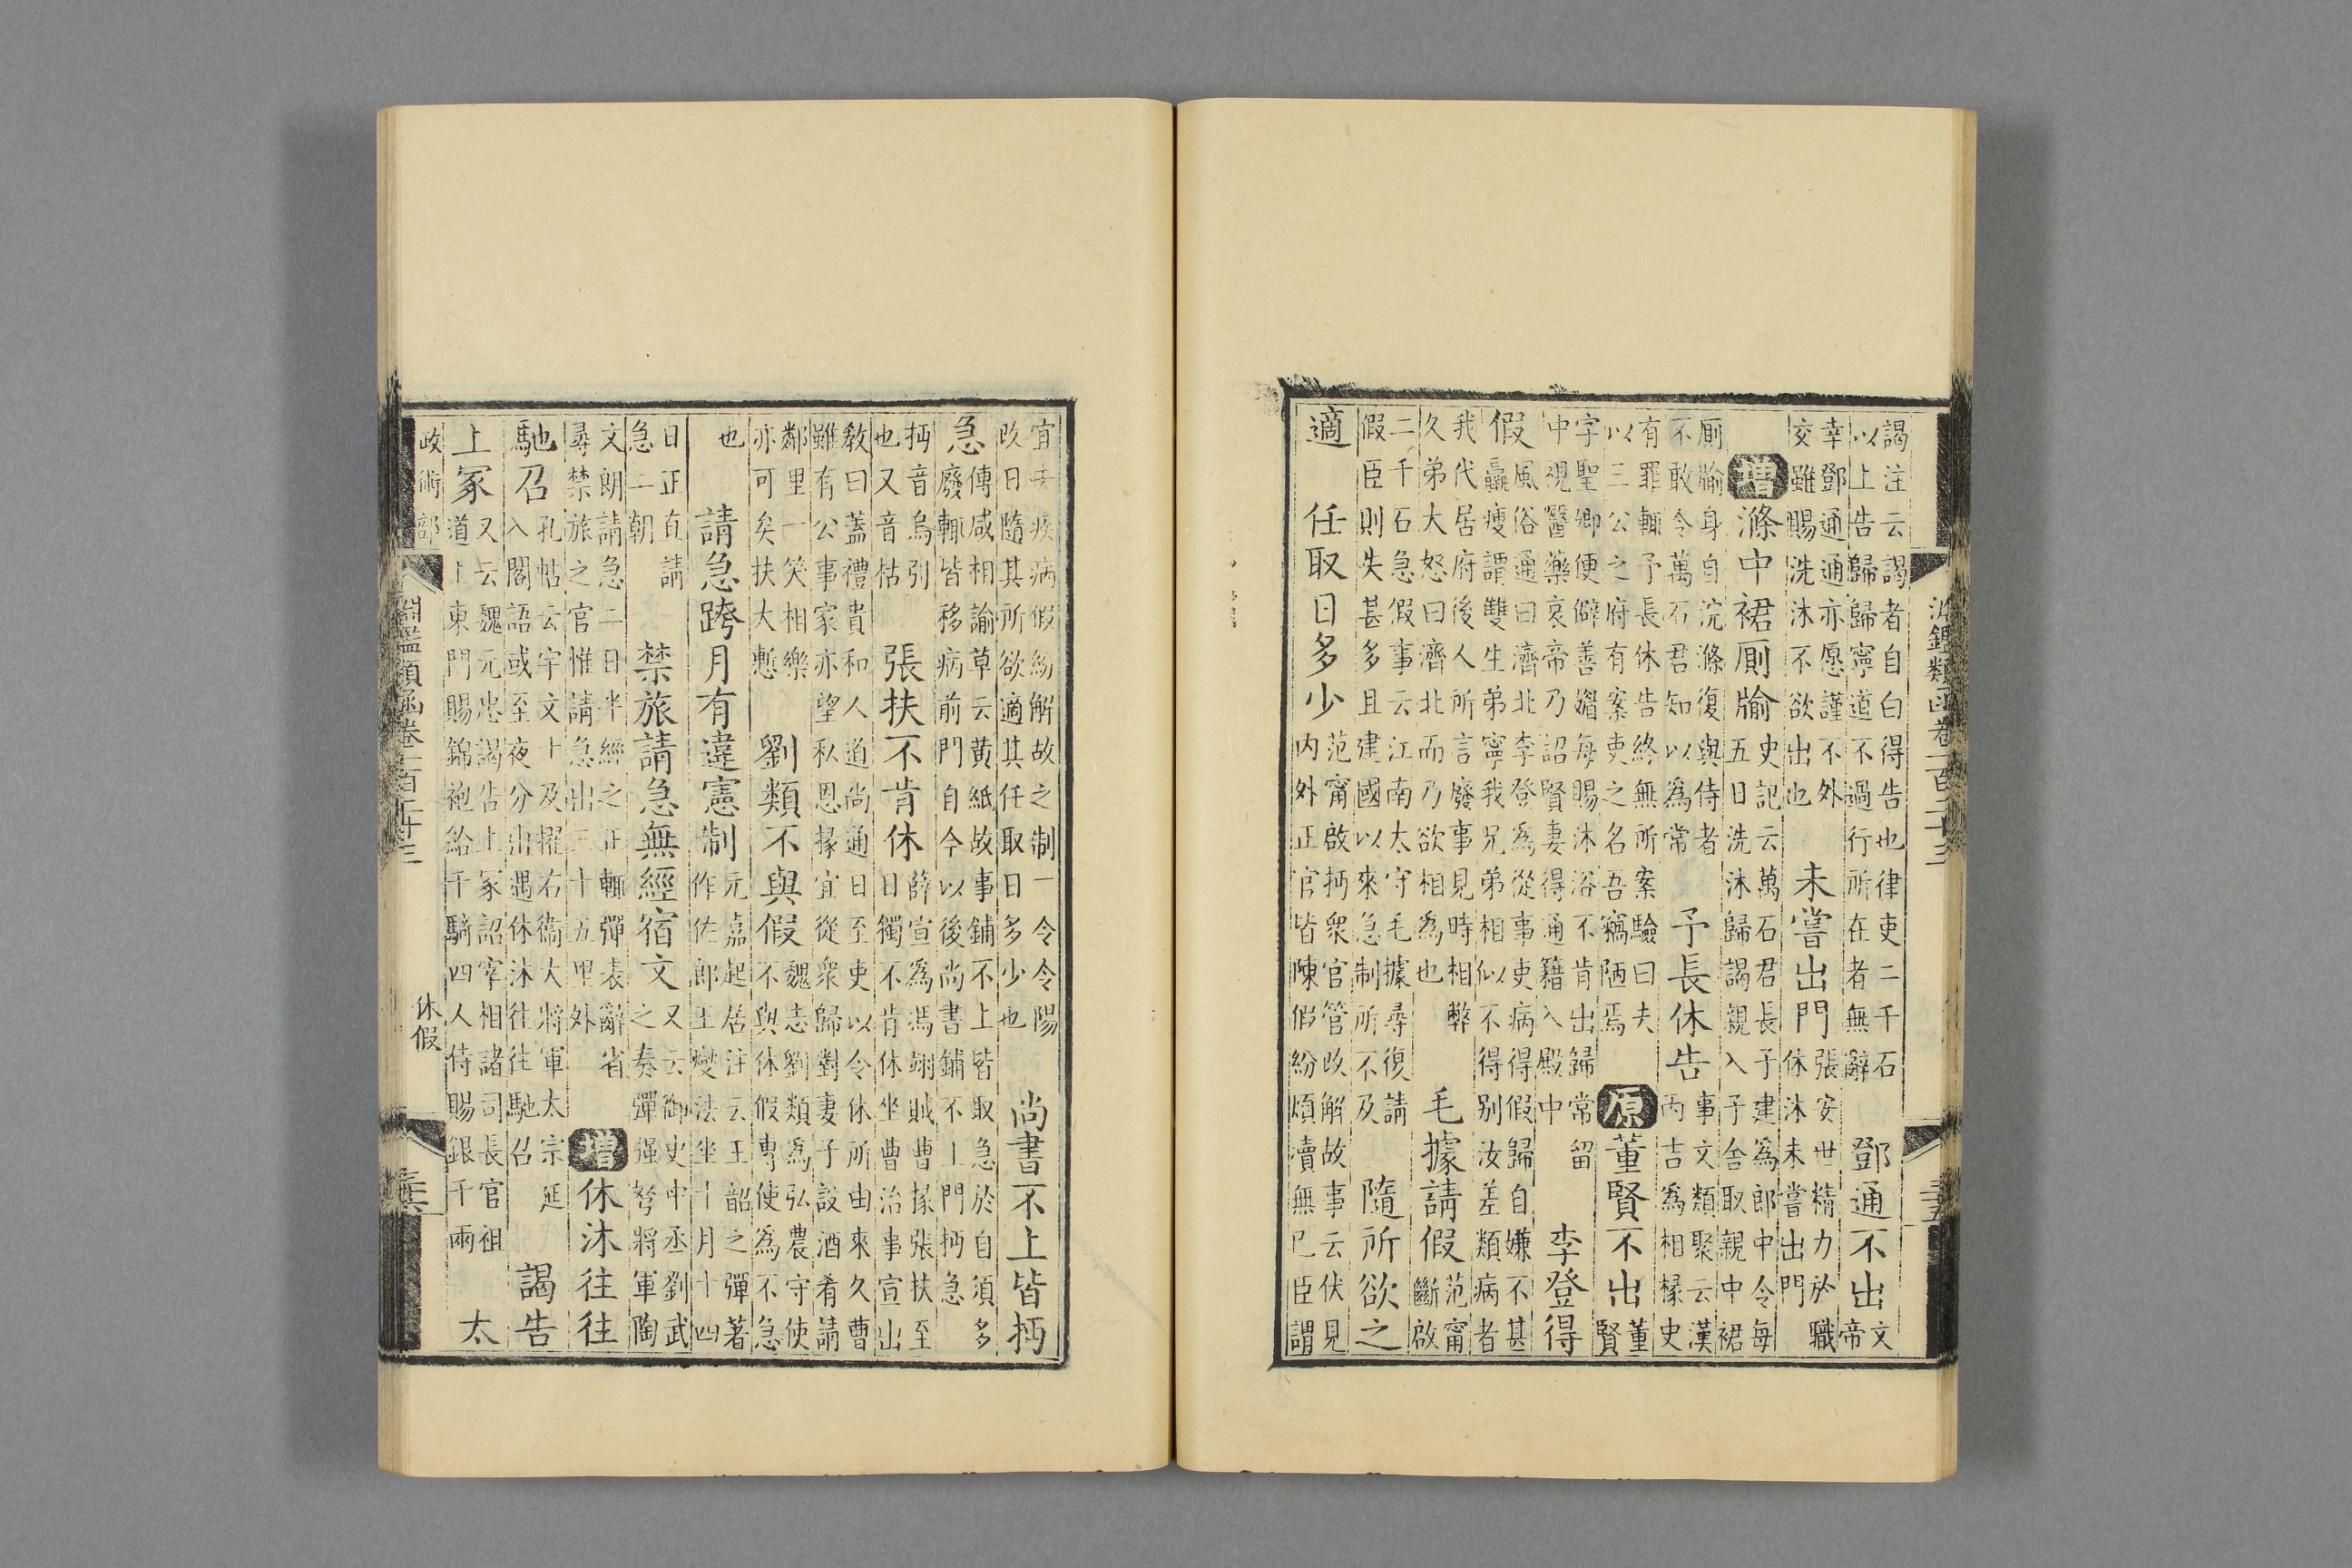 淵鑑類函卷一百二十三 三五
謁注云謁者自白得告也律吏二千石
以上告歸歸寧道不過行所在者無辭
鄧通不出
文
帝
幸鄧通通亦愿謹不外
交雖賜洗沐不欲出也
未嘗出門
張安世精力於職
休沐未嘗出門
增 滌中裙厠牏
史記云萬石君長子建為郎中令每
五日洗沐歸謁親入子舍取親中裙
厠牏身自浣滌復與侍者
不敢令萬石君知以為常
予長休告
事文類聚云漢
丙吉為相掾史
有罪輒予長休告終無所案驗曰夫
以三公之府有案吏之名吾竊陋焉
原 董賢不出
董
賢
字聖卿便僻善媚每賜沐浴不肯出歸常留
中視醫藥哀帝乃詔賢妻得通籍入殿中
李登得
假
風俗通曰濟北李登為從事吏病得假歸自嫌不甚
羸瘦謂雙生弟寧我兄弟相似不得别汝差類病者
我代居府後人所言廢事見時相弊
久弟大怒曰濟北而乃欲相為也
毛據請假
范甯
斷啟
二千石急假事云江南太守毛據尋復請
假臣則失甚多且建國以來急制所不及
隨所欲之
適 任取日多少
范甯啟抅衆官管改解故事云伏見
内外正官皆陳假紛煩瀆無已臣謂
宜去疾病假紛解故之制一令令陽
改日隨其所欲適其任取日多少也
尚書不上皆抅
急
傳咸相諭草云黄紙故事鋪不上皆取急於自須多
廢輒皆移病前門自今以後尚書鋪不上門抅急
抅音烏引
也又音枯
張扶不肯休
薛宣為馮翊賊曹掾張扶至
日獨不肯休坐曹治事宣出
教曰蓋禮貴和人道尚通日至吏以令休所由來久曹
雖有公事家亦望私恩掾宜從衆歸對妻子設酒肴請
鄰里一笑相樂
亦可矣扶大慙
劉類不與假
魏志劉類為弘農守使
不與休假專使為不急
也
請急跨月有違憲制
元嘉起居注云王韶之彈著
作佐郎王燮法坐十月十四
日正直請
急二朝
禁旅請急無經宿文
又云御史中丞劉武
之奏彈强弩將軍陶
文朗請急二日半經之正輒彈表辭省
尋禁旅之官惟請急出三十五里外
增 休沐往往
馳召
孔帖云宇文士及擢右衞大將軍太宗延
入閣語或至夜分出遇休沐往往馳召
謁告
上冡
又云魏元忠謁告上冡詔宰相諸司長官祖
道上東門賜錦袍給千騎四人侍賜銀千兩
太
政術部 淵鑑類函卷一百二十三 休假 三六